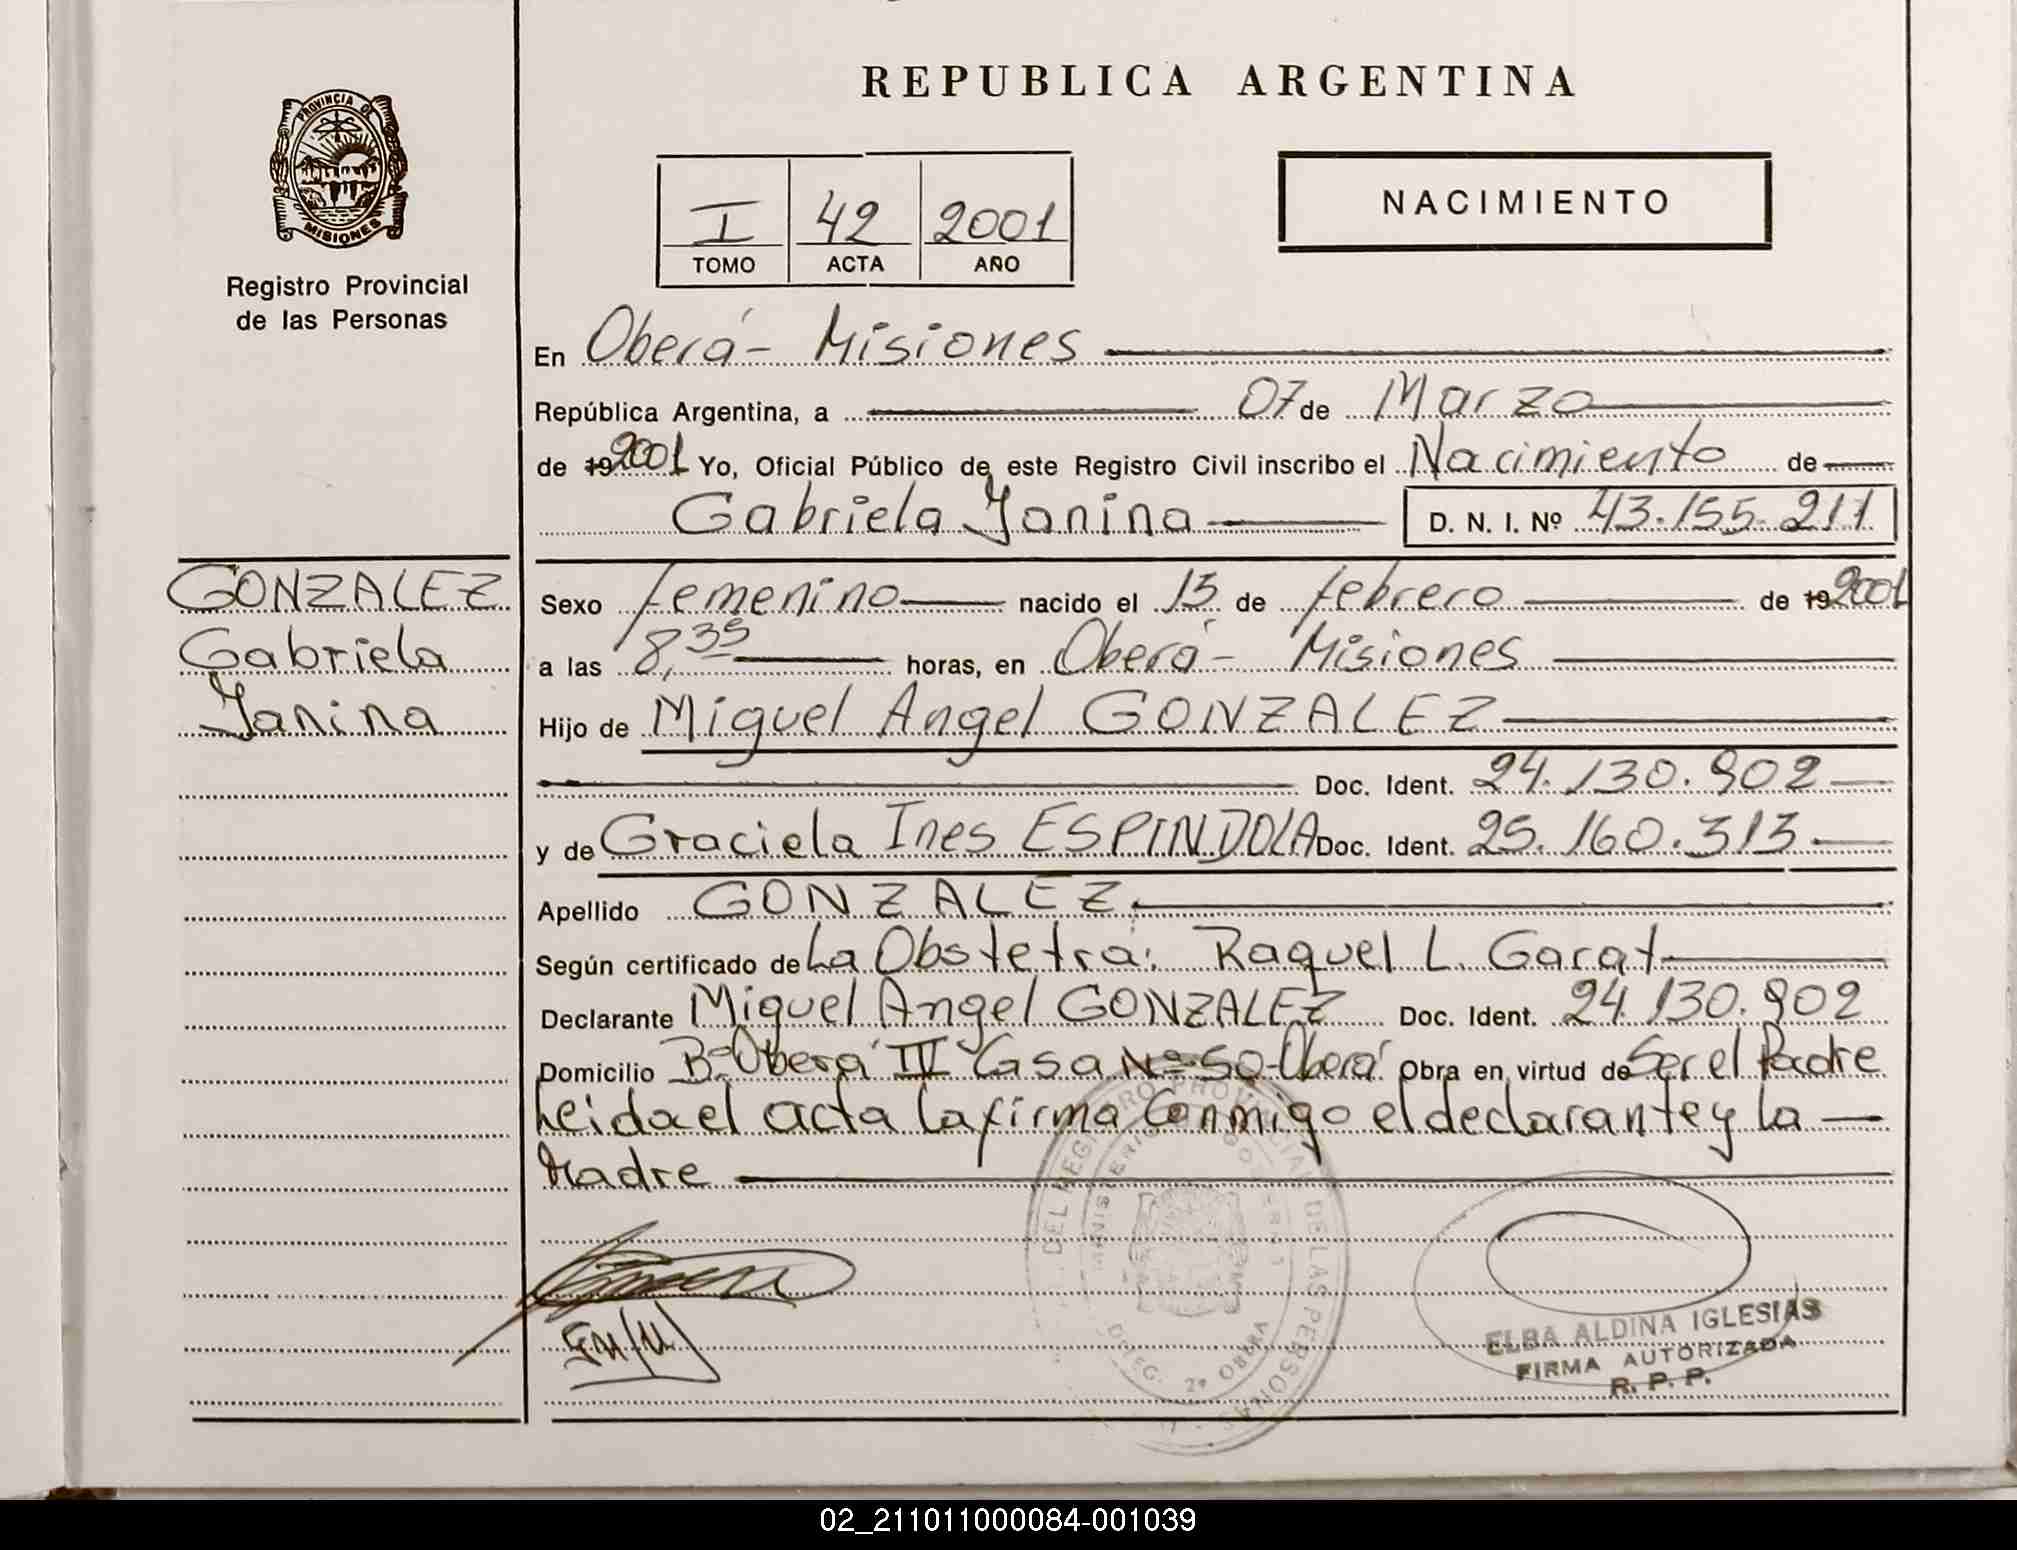 REPUBLICA ARGENTINA
PROVINCIA DE
MISIONES
Registro Provincial
de las Personas
I 42 2001
TOMO ACTA AÑO
NACIMIENTO
En Oberá - Misiones
República Argentina, a 07 de Marzo
de 19 2001 Yo, Oficial Público de este Registro Civil inscribo el Nacimiento de
Gabriela Yanina D. N. I. Nº 43.155.211
GONZALEZ
Gabriela
Yanina
Sexo femenino nacido el 15 de febrero de 19 2001
a las 8,35 horas, en Oberá - Misiones
Hijo de Miguel Angel GONZALEZ
Doc. Ident. 24.130.902
y de Graciela Ines ESPINDOLA Doc. Ident. 25.160.313
Apellido GONZALEZ
Según certificado de La Obstetra: Raquel L. Garat
Declarante Miguel Angel GONZALEZ Doc. Ident. 24.130.902
Domicilio Bº Oberá III Casa Nº 50 - Oberá Obra en virtud de Ser el Padre
Leida el acta la firma Conmigo el declarante y la
Madre
DEL REGISTRO PROVINCIAL DE LAS PERSONAS
MINISTERIO DE GOBIERNO
DELEG. 2º OBERA
ELBA ALDINA IGLESIAS
FIRMA AUTORIZADA
R. P. P.
02_211011000084-001039